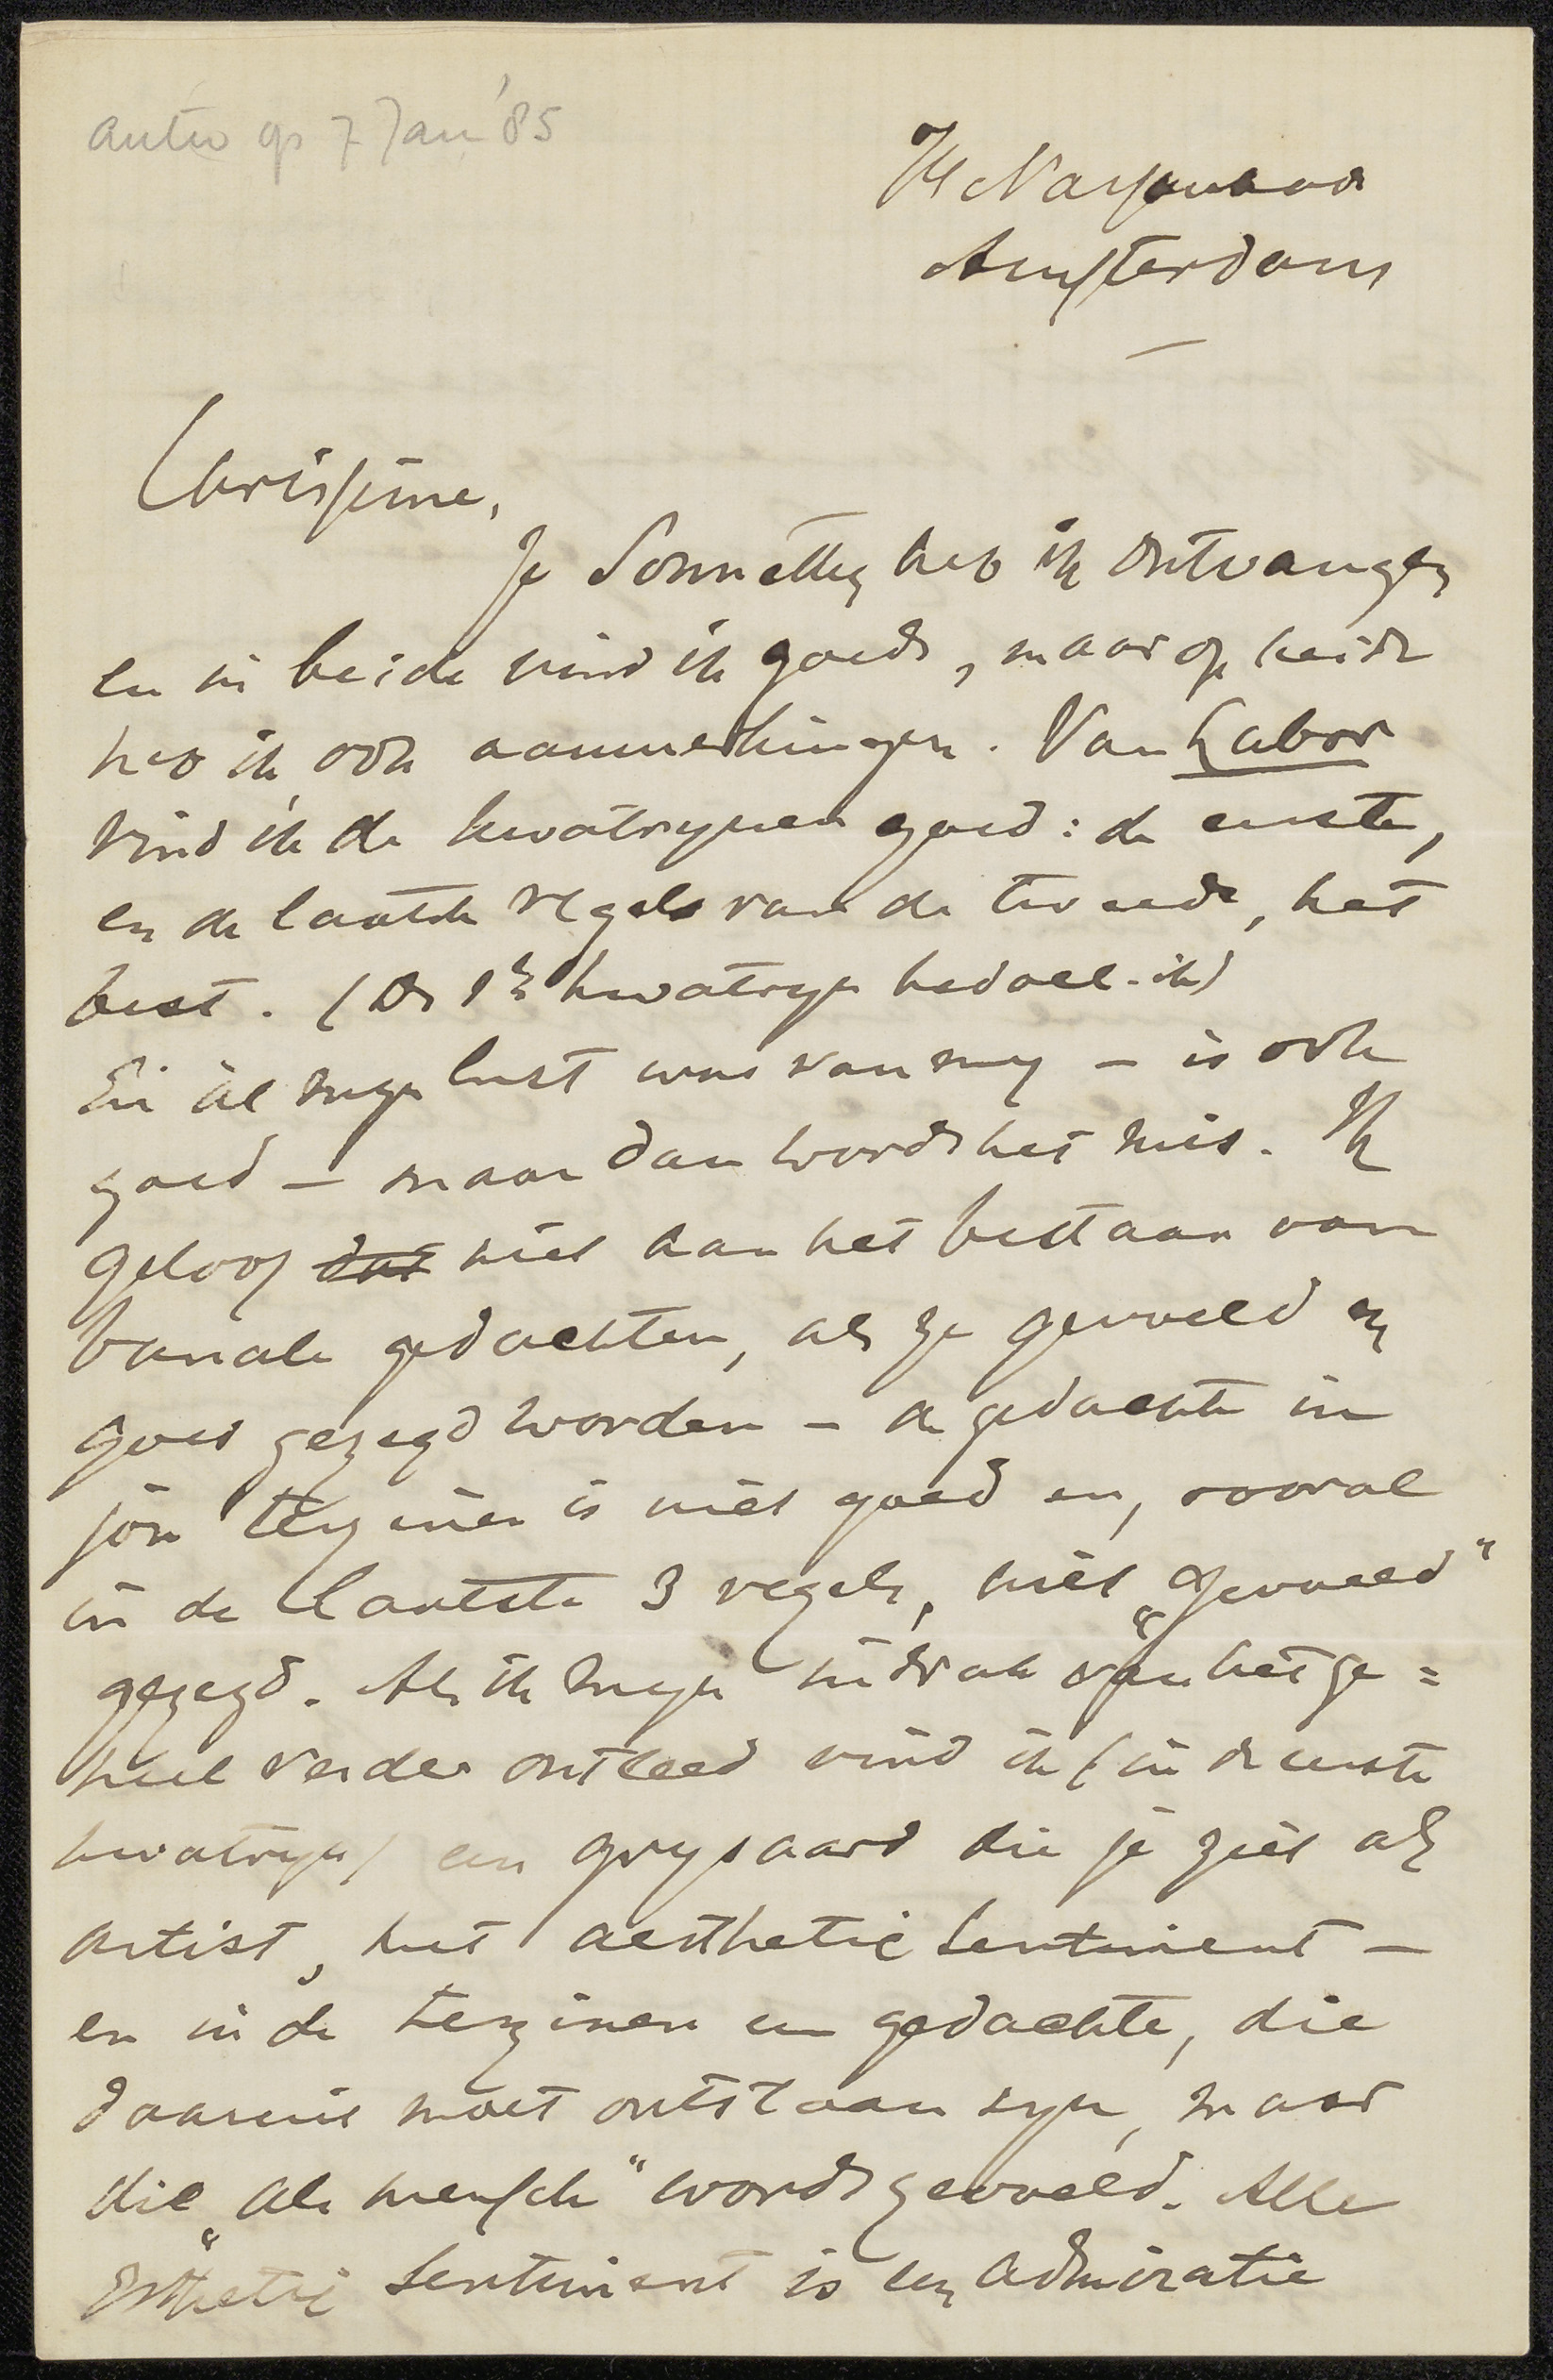 antw op 7 Jan '85
Amsterdam
Carissime,
Je Sonnetten heb ik ontvangen
en in beide vind ik goeds, maar op beide
heb ik ook aanmerkingen. Van Labor
vind ik de kwatrynen goed: de eerste,
en de laatste regels van de tweede, het
best. (De 1e kwatryn bedoel-ik)
En al myn lust was van my — is ook
goed — maar dan wordt het mis. Ik
geloof dat niet aan het bestaan van
banale gedachten, als ze gevoeld en
goed gezegd worden — de gedachte in
jou terzinen is niet goed en, vooral
in de laatste 3 regels, niet „gevoeld"
gezegd. Als ik myn indruk van het ge=
heel verder ontleed vind ik (in de eerste
kwatryn) een grysaard die je ziet als
artist, met aesthetic sentiment —
en in de terzinen een gedachte, die
daaruit moet ontstaan zyn, maar
die „als mensch" wordt gevoeld. Alle
Esthetic sentiment is een admiratie